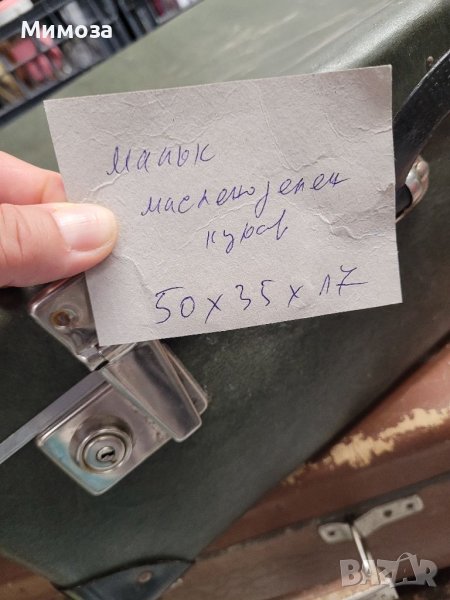 Мимоза
малък
маслено зелен
куфар
50 x 35 x 17
BAZAR